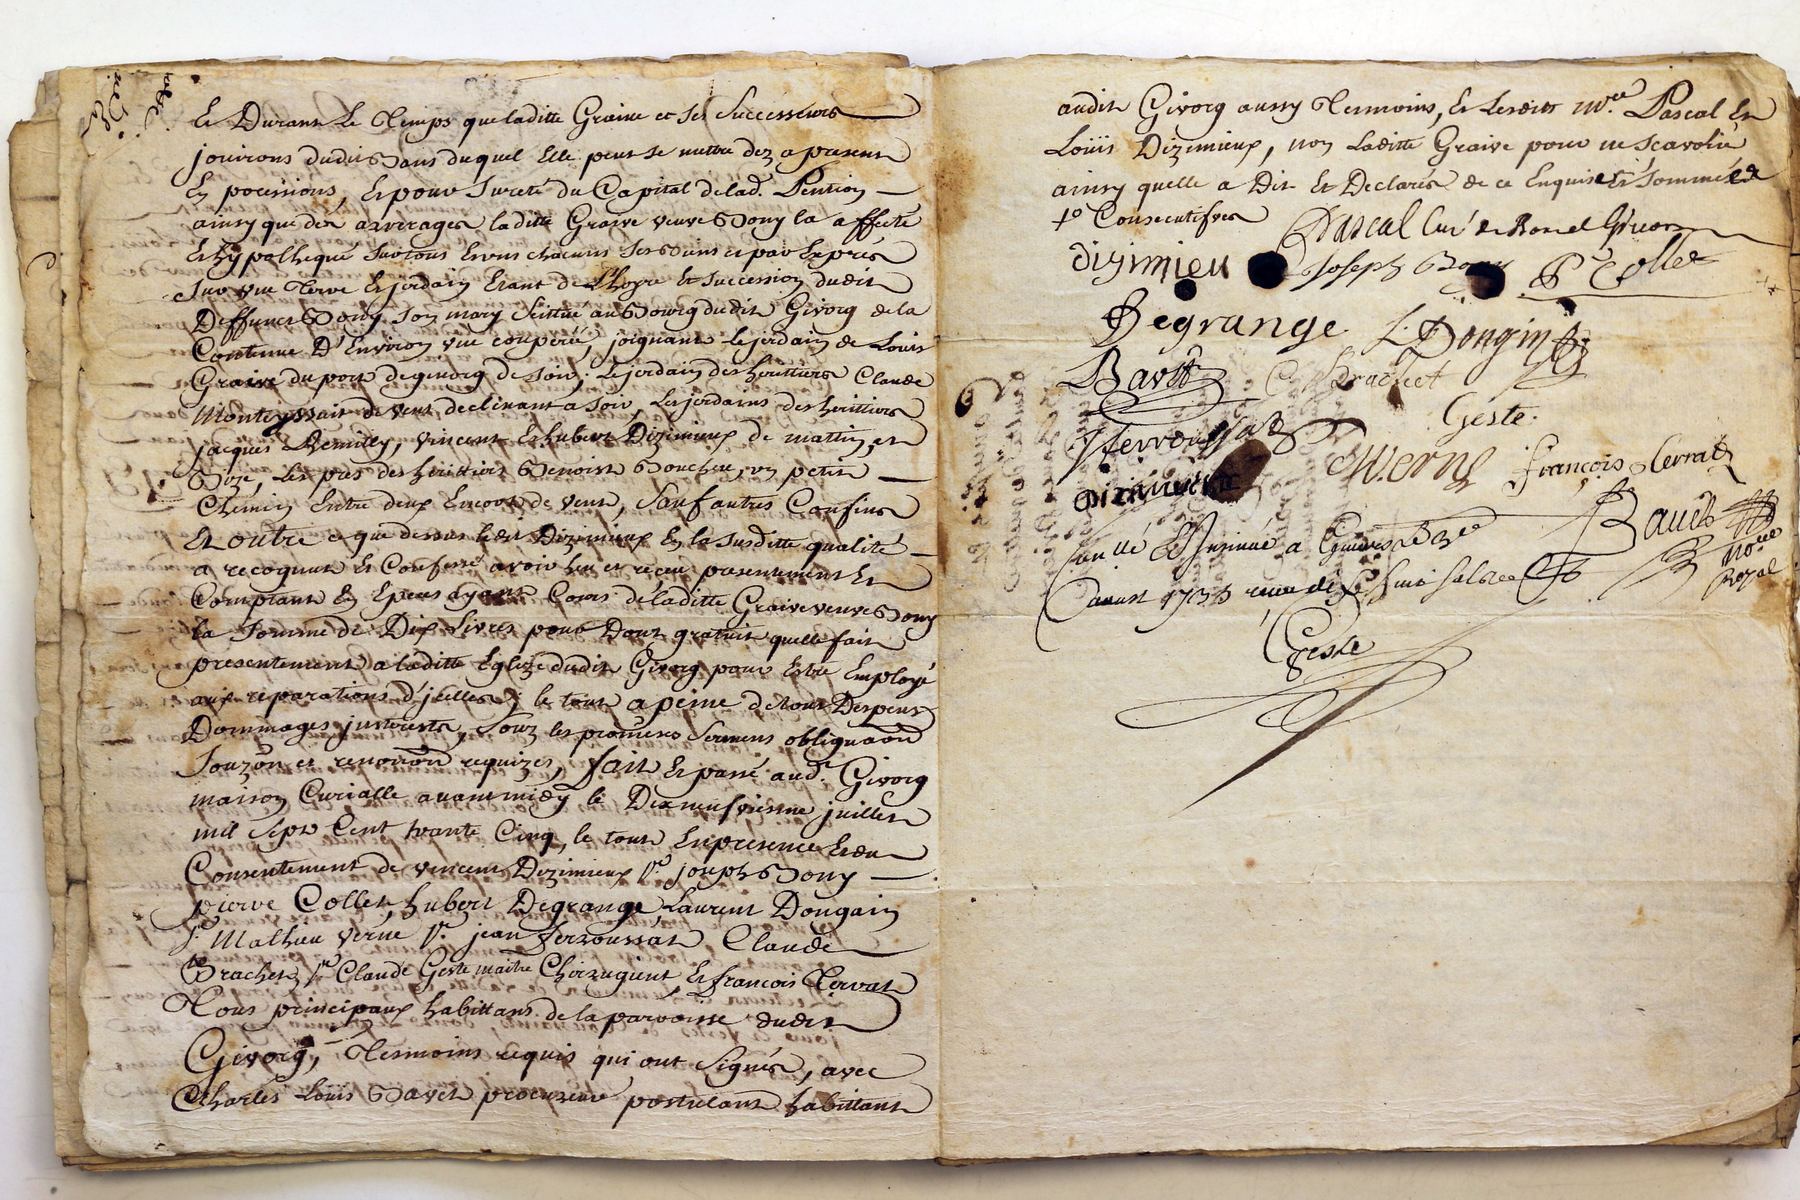 Et Durant Le Temps que laditte Graive et ses Successeurs
jouirons dudit Bans duquel Elle peut se mettre dez a present
En pocession, Et pour Sureté du Capital de lad. Pention
ainsy que des arrerages laditte Graive veuve Bony la affecté
Et hypothequé Sur tous Et uns chacuns Ses Biens et par Exprés
Sur une Terre Et jerdain Etant de L'hoyre Et Succession dudit
Deffunct Bony Son mary Scittué au Bourg dudit Givorg de la
Contenue D'Environ une couperée, joignant le jerdain de Louis
Graive du port de givorg de Soir, Le jerdain des herittiers Claude
Monteyssait de vent declinant a Soir, Les jerdains des herittiers
jacques Remilly, vincent Et hubert Dizimieux de mattin, et
Bize, Les prés des herittiers Benoist Boucheu, un petit
Chemin Entre deux Encore de vent, Sauf autres Confins
Et outre ce que dessus ledit Dizimieux En la susditte qualité
a recognut Et Confessé avoir heu et receu presentement Et
Comptant En Especes ayant Cours de laditte Graive veuve Bony
la Somme de Dix Livres pour Dont gratuit quelle fait
presentement a laditte Eglize dudit Givorg pour Estre Employé
aux reparations d'jcelles; le tout a peine de tous Despens
Dommages jnterests, Souz les promesses Serments obligaaon
Souzōn et renonaōn requizes, fait Et passé aud. Givorg
maison Curialle avant midy le Dix neufvieme juillet
mil Sept Cent trante Cinq, le tout En presence Et du
Consentement de vincent Dizimieux Sr. joseph Bony
pierre Collet hubert Degrange, Laurent Dongain
Sr. Mathieu verne Sr. jean ferroussat Claude
Brachet Sr Claude Geste maitre Chirrugient, Et françois Terrat
Tous principaux habittans de la parroisse dudit
Givorg, Tesmoins requis qui ont Signés, avec
Charles Louis Bavet procureur postulant habittant
audit Givorg aussy Tesmoins, Et Lesdits Mre. Pascal Et
Loüis Dizimieux, non Laditte Graive pour ne scavoir
ainsy quelle a Dit Et Declarés de ce Enquise Et Sommée
Consecutifves
Pascal Curé de Givors
dizimieu Joseph Bony P Collet
Degrange L. Dongin
Bavet C Brachet
Geste.
fferroussat M. Verne françois Terrat
Dizimieux
Baudt
no.re
Royal
Con.llé & Insinué a Givors Le 3e
aaust 1735 receu
Geste